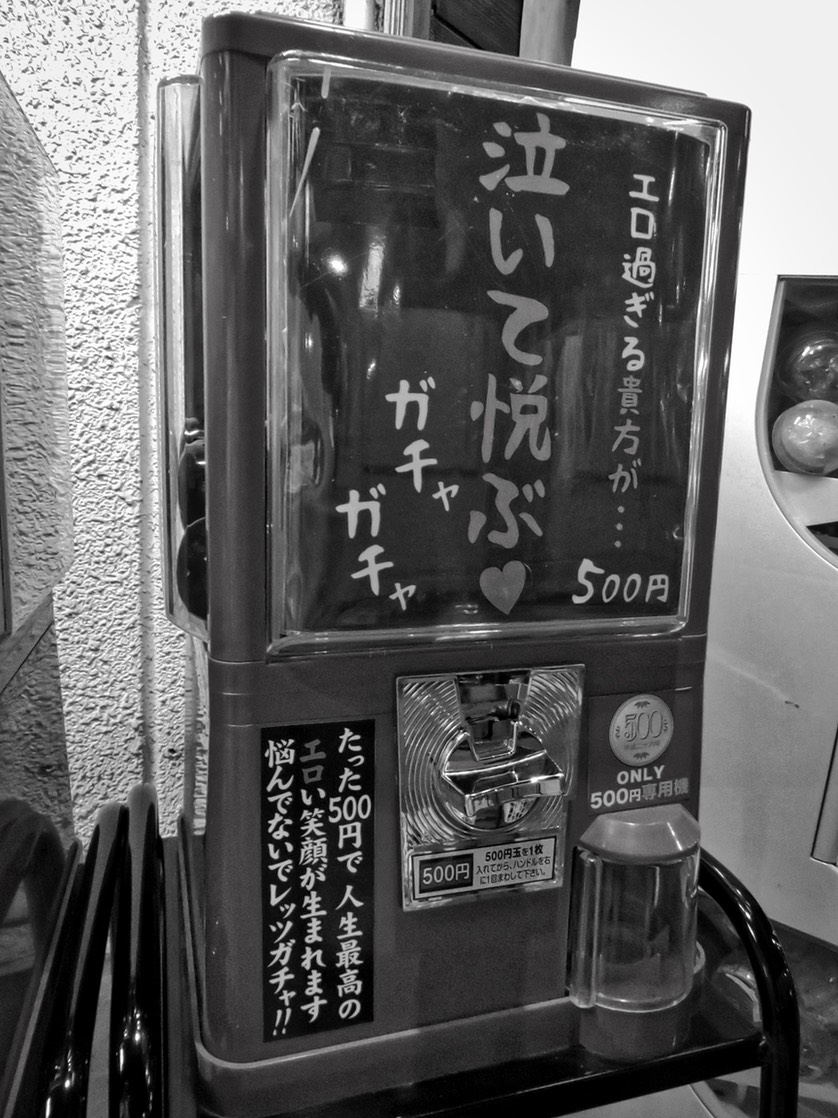 エロ過ぎる貴方が…
泣いて悦ぶ♥
ガチャ
ガチャ
500円
たった500円で 人生最高の
エロい笑顔が生まれます
悩んでないでレッツガチャ!!
500円
500円玉を1枚
入れてから、ハンドルを右
に1回まわして下さい。
500
ONLY
500円専用機